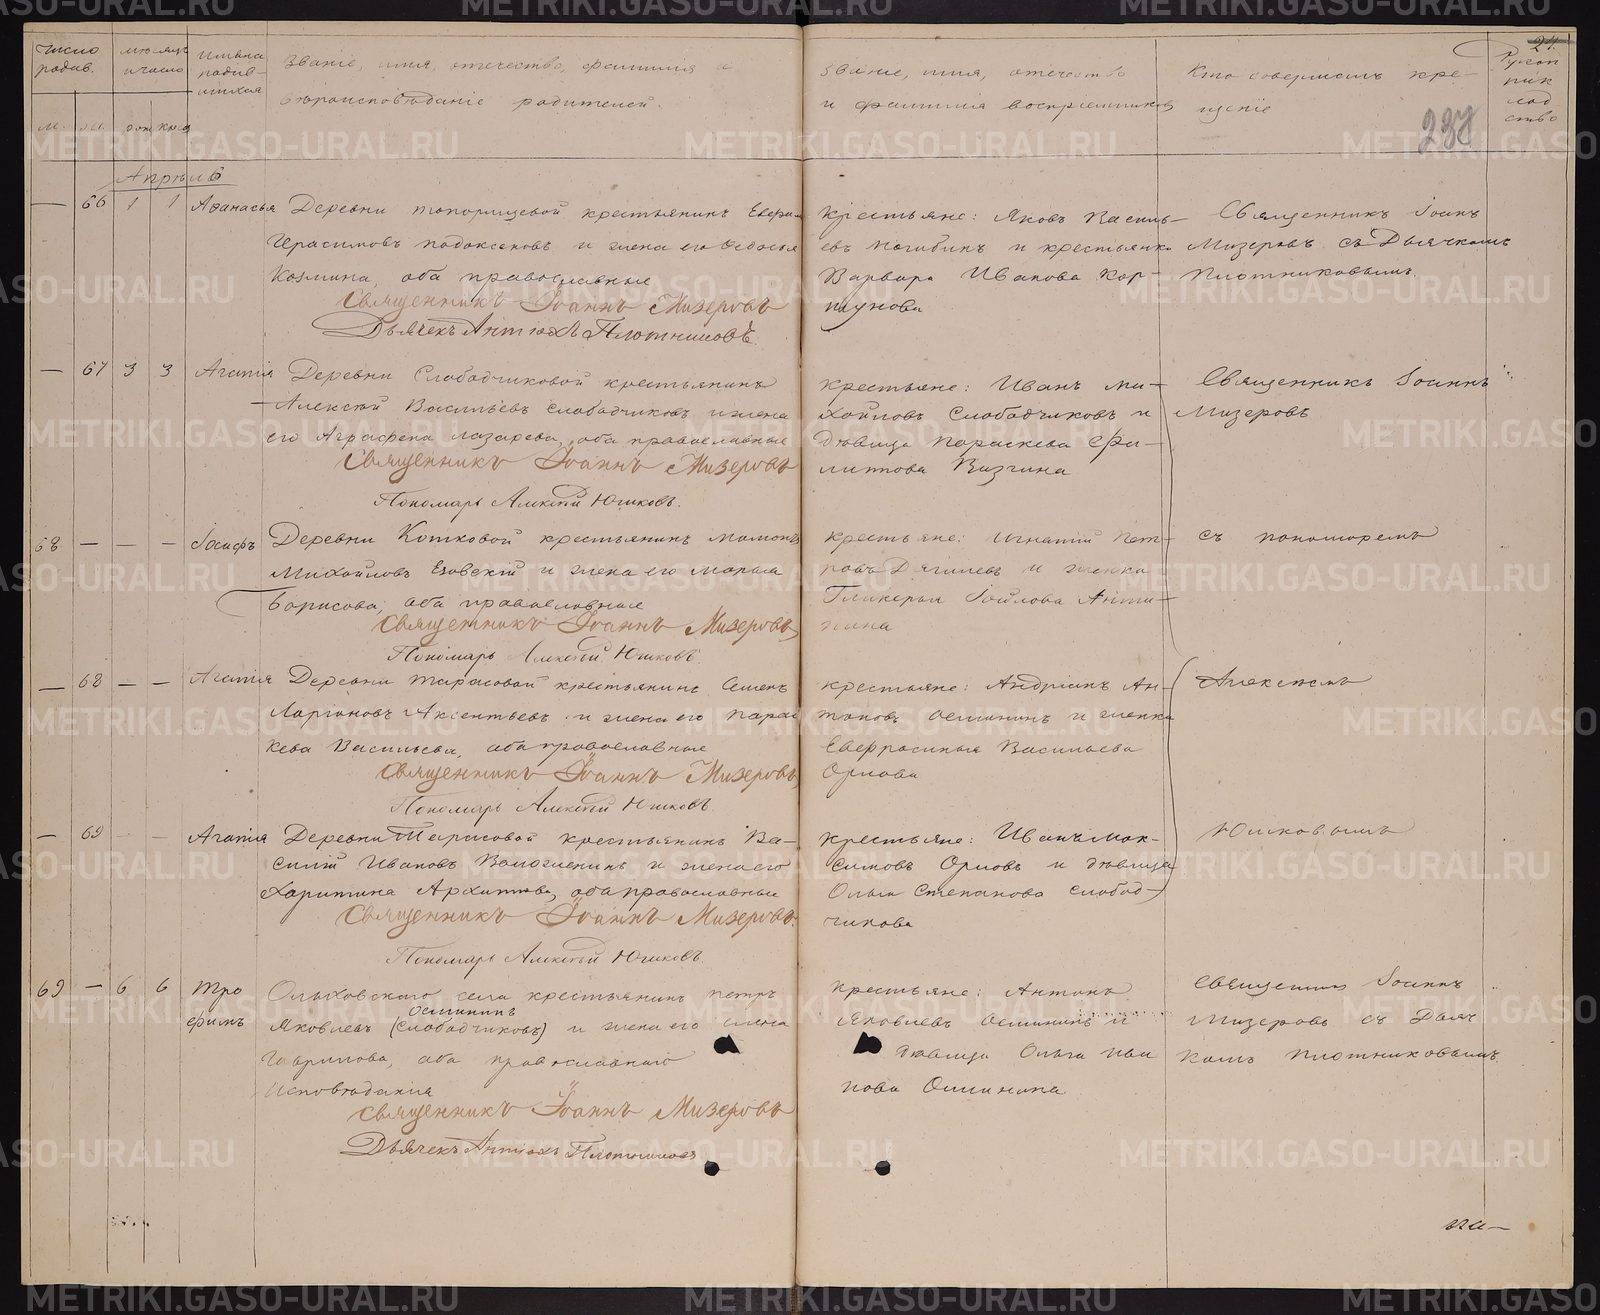 число родив.
мѣсяцъ и число
имена родив-шихся
Званіе, имя, отчество, фамилія и
вѣроисповѣданіе родителей.
Званіе, имя, отчество
и фамилія воспріемниковъ
Кто совершалъ кре-
щеніе
24.
238
Апрѣль
— 66 1 1 Аѳанасья Деревни
крестьянинъ
Герасимовъ
и жена его Ѳедосья
Козмина, оба православные
Священникъ Іоаннъ Мизеровъ
Дьячекъ Антіохъ Плотниковъ.
крестьяне: Яковъ Василь-
евъ Погибинъ и крестьянка
Варвара Иванова Кор-
Священникъ Іоанъ
Мизеровъ съ Дьячкомъ
Плотниковымъ.
— 67 3 3 Агапія Деревни Слободчиковой крестьянинъ
Алексѣй Васильевъ Слободчиковъ и жена
его Аграфена Лазарева, оба православные
Священникъ Іоаннъ Мизеровъ
Пономарь Алексѣй Юшковъ.
крестьяне: Иванъ Ми-
хайловъ Слободчиковъ и
дѣвица Параскева Фи-
липпова Визгина
Священникъ Іоаннъ
Мизеровъ
68 — — — Іосифъ Деревни Котковой крестьянинъ Мамонтъ
Михайловъ Езовскій и жена его Марья
Борисова, оба православные
Священникъ Іоаннъ Мизеровъ
Пономарь Алексѣй Юшковъ.
крестьяне: Игнатій Пет-
ровъ Дягилевъ и женка
Гликерья
съ пономоремъ
— 68 — — Агапія Деревни Тарасовой крестьянинъ Семенъ
Ларіоновъ Аксентьевъ и жена его Парас
кева Васильева, оба православные
Священникъ Іоаннъ Мизеровъ
Пономарь Алексѣй Юшковъ.
крестьяне: Андріанъ Ан-
тоновъ Осминин и женка
Евфросинья Васильева
Орлова
Алексѣемъ
— 69 — — Агапія Деревни Тарасовой крестьянинъ Ва-
силій Ивановъ Воложенинъ и жена его
Харитина Архипова, оба православные
Священникъ Іоаннъ Мизеровъ.
Пономарь Алексѣй Юшковъ.
крестьяне: Иванъ Мак-
симовъ Орловъ и дѣвица
Ольга Степанова Слобод-
чикова
Юшковымъ
69 — 6 6 Тро
фимъ
Ольховскаго села крестьянинъ Петръ
Осминин
Яковлевъ (Слободчиковъ) и жена его Елена
Гаврилова, оба православнаго
исповѣданія
Священникъ Іоаннъ Мизеровъ
Дьячекъ Антіохъ Плотниковъ
крестьяне: Антонъ
Яковлевъ Осминин и
дѣвица Ольга Пав
лова Осминина
Священник Іоаннъ
Мизеровъ съ Дьяч
комъ Плотниковымъ
METRIKI.GASO-URAL.RU